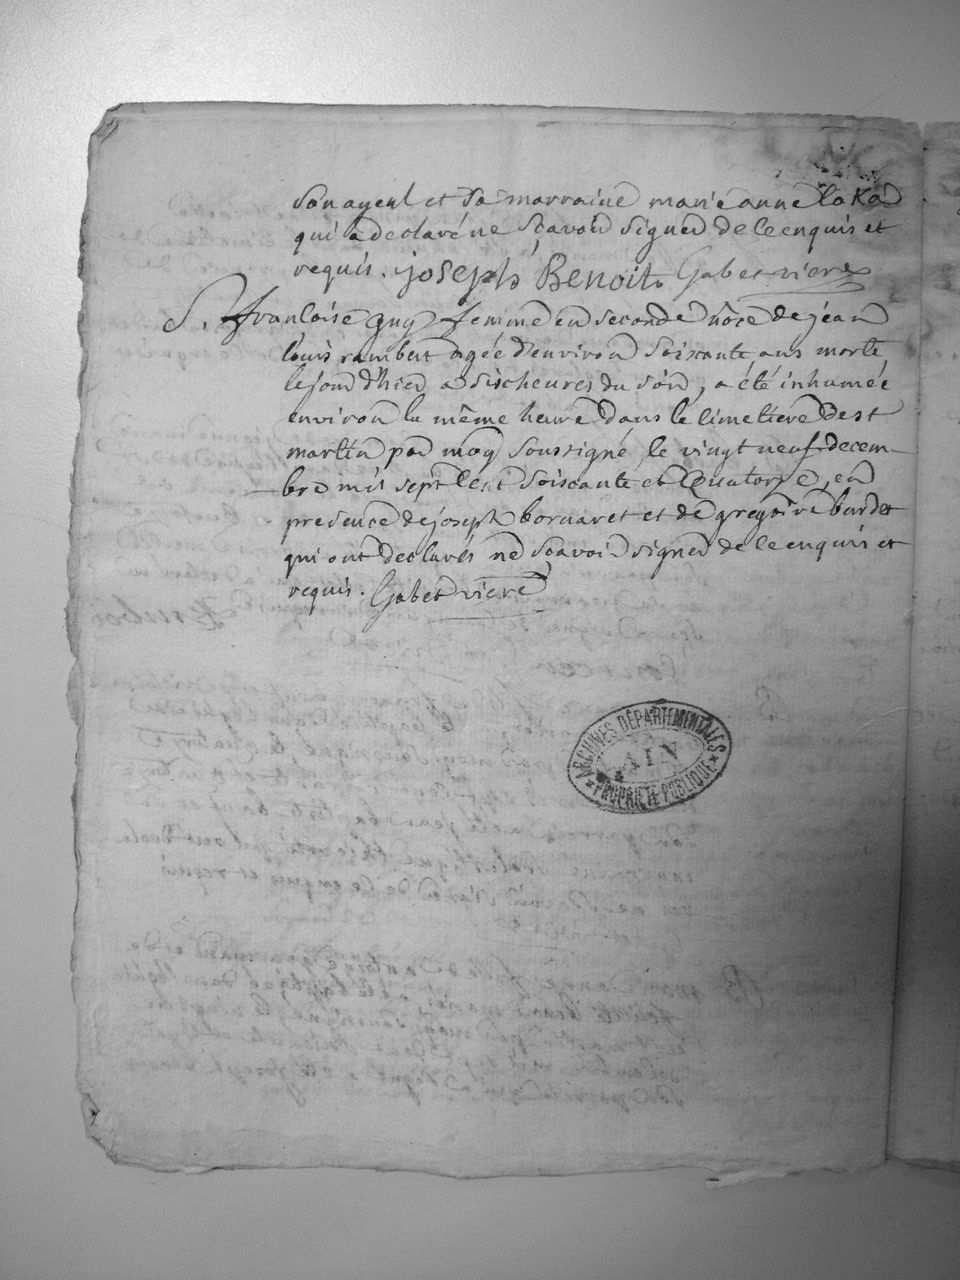 son ayeul et sa marraine marie anne
qui a declaré ne sçavoir signer de ce enquis et
requis. joseph Benoit. Gabet vicre
S. françoise guy femme en seconde nôce de jean
louis rambert agée d'environ soixante ans morte
le jour d'hier a six heures du soir, a été inhumée
environ la même heure dans le cimetiere de st
martin par moy soussigné, le vingt neuf decem-
bre mil sept cent soixante et quatorze, en
presence de joseph bornaret et de gregoire burdet
qui ont declarés ne sçavoir signer de ce enquis et
requis. Gabet vicre
ARCHIVES DÉPARTEMENTALES
AIN
★ PROPRIÉTÉ PUBLIQUE ★